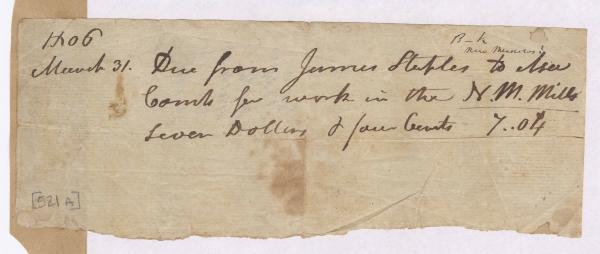 1806
B–k
New Meadows
March 31. Due from James Staples to Asa
Comb for work in the N. M. Mills
Seven Dollers & four Cents 7..04
[521 A]